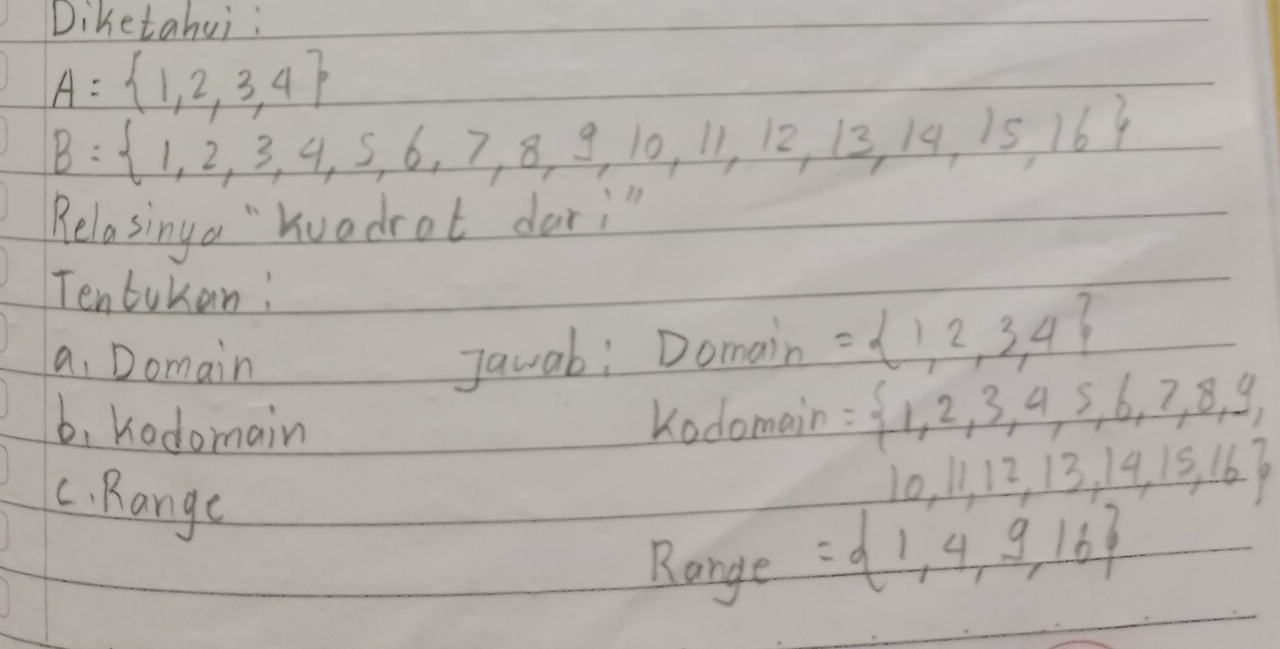 Diketahui :
A = { 1, 2, 3, 4 }
B = { 1, 2, 3, 4, 5, 6, 7, 8, 9, 10, 11, 12, 13, 14, 15, 16 }
Relasinya "Kuadrat dari"
Tentukan :
a. Domain Jawab : Domain = { 1, 2, 3, 4 }
b. Kodomain Kodomain = { 1, 2, 3, 4, 5, 6, 7, 8, 9,
c. Range 10, 11, 12, 13, 14, 15, 16 }
Range = { 1, 4, 9, 16 }